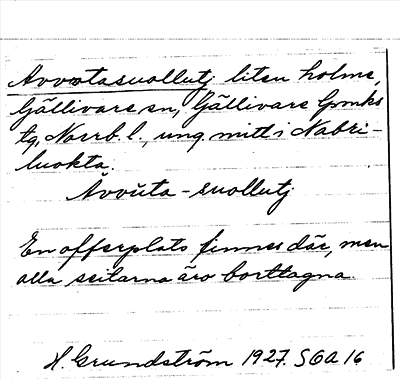 Avvotasuollutj liten holme,
Gällivare sn, Gällivare lpmks
tg, Norrb. l., ung. mitt i Nabri-
luokta.
Åvvŭta-suollutj
En offerplats finnes där, men
alla seitarna äro borttagna.
H. Grundström 1927. SOA 16